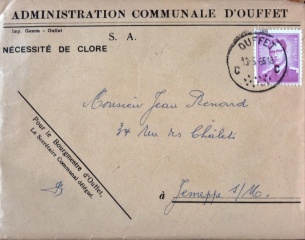 ADMINISTRATION COMMUNALE D'OUFFET
Imp. Gonne - Ouffet
S. A.
NÉCESSITÉ DE CLORE
OUFFET
C C
Monsieur Jean Renard
34 rue des Châlets
Pour le Bourgmestre d'Ouffet,
Le Secrétaire Communal délégué,
à Jemappe s/M.